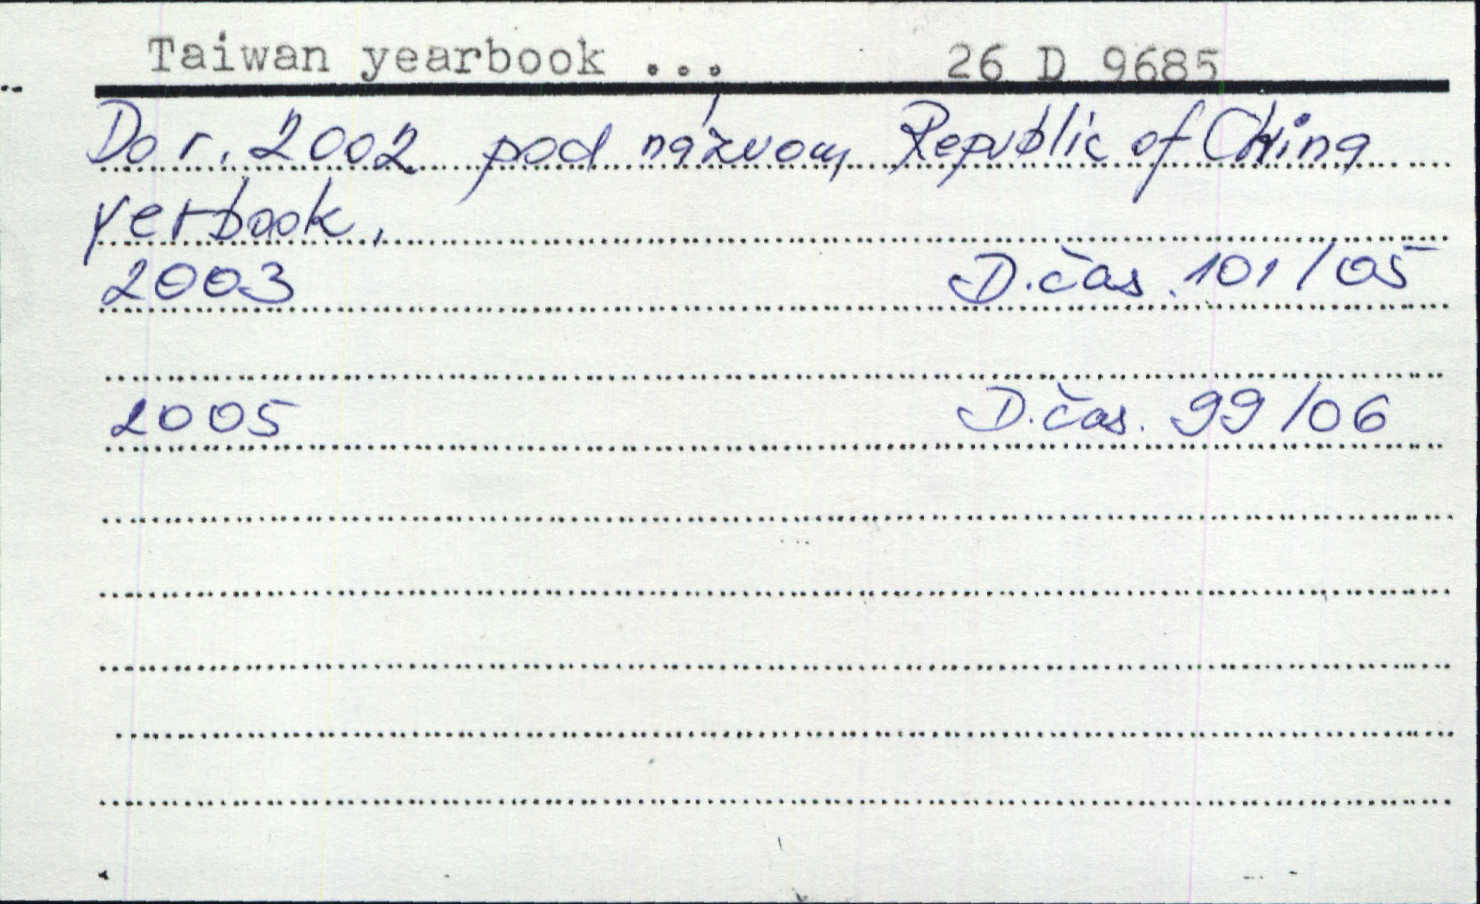 Taiwan yearbook ... 26 D 9685
Do r. 2002 pod názvom Republic of China
yerbook.
2003 D.čas. 101/05
2005 D.čas. 99/06